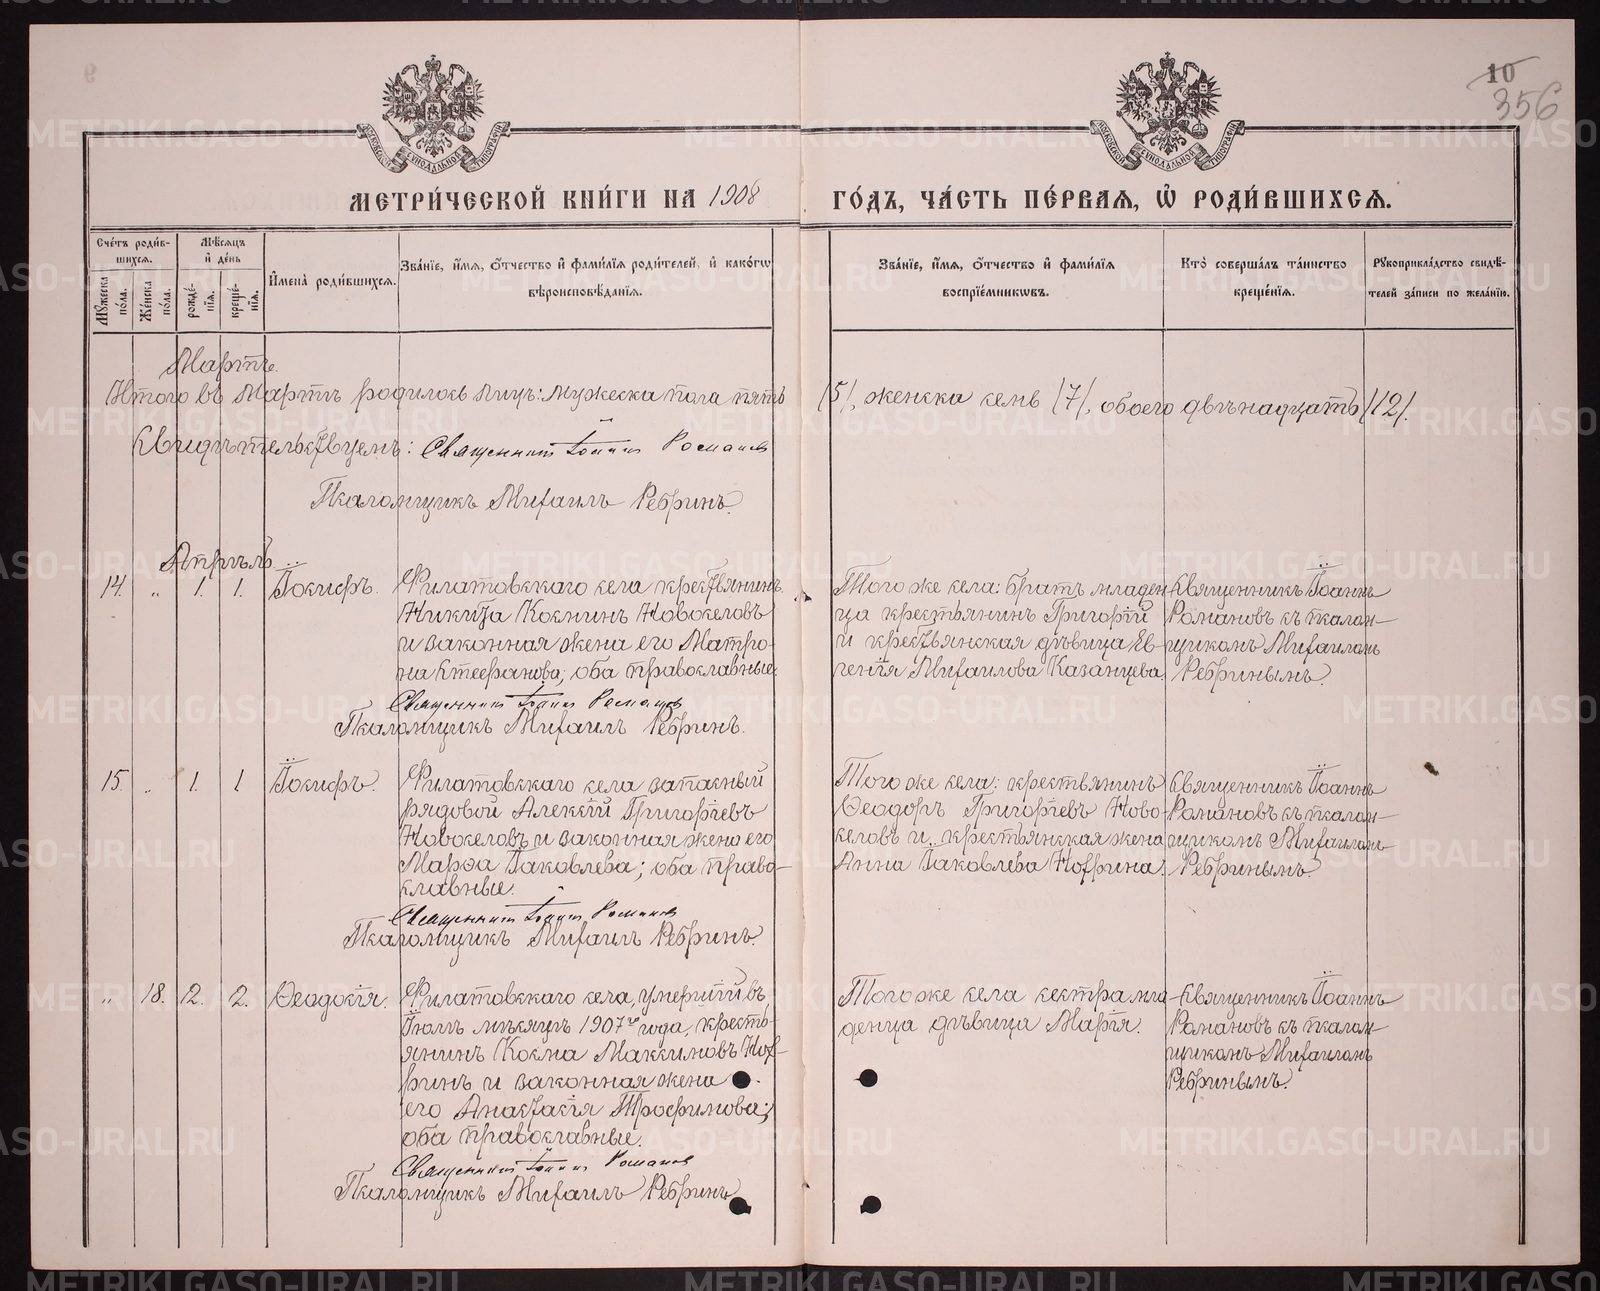 10
356
МЕТРИ́ЧЕСКОЙ КНИ́ГИ НА 1908
ГО́ДЪ, ЧА́СТЬ ПЕ́РВАЯ, Ѡ҆ РОДИ́ВШИХСЯ.
Сче́тъ роди́в-
шихся.
Мѣ́сяцъ
и҆ де́нь
Мꙋ́жеска
по́ла.
Же́нска
по́ла.
рожде́-
нїя.
креще́-
нїя.
И҆мена̀ роди́вшихся.
Зва́нїе, и҆́мя, ѻ҆́тчество и҆ фами́лїя роди́телей, и҆ како́гѡ
вѣроисповѣ́данїя.
Зва́нїе, и҆́мя, ѻ҆́тчество и҆ фами́лїя
воспрїе́мникѡвъ.
Кто̀ соверша́лъ та́инство
креще́нїя.
Рꙋкоприкла́дство свидѣ́-
телей за́писи по жела́нїю.
Мартъ.
Итого въ Мартѣ родилось лицъ: мужеска пола пять /5/, женска семь /7/, обоего двѣнадцать /12/.
Свидѣтельствуемъ: Священникъ Іоаннъ Романов
Псаломщикъ Михаилъ Ребринъ.
Апрѣль
14. " 1. 1. Іосифъ.
Филатовскаго села крестьянинъ
Никита Косминъ Новоселовъ
и законная жена его Матро-
на Стефанова; оба православные.
Священник Іоанн Романов
Псаломщикъ Михаилъ Ребринъ.
Того же села: братъ младен-
ца крестьянинъ Григорій
и крестьянская дѣвица Ев-
генія Михаилова Казанцева.
Священникъ Іоаннъ
Романовъ съ псалом-
щикомъ Михаиломъ
Ребринымъ.
15. " 1. 1 Іосифъ.
Филатовскаго села запасный
рядовой Алексій Григоріевъ
Новоселовъ и законная жена его
Марѳа Іаковлева; оба право-
славные.
Священник Іоанн Романов
Псаломщикъ Михаилъ Ребринъ.
Того же села: крестьянинъ
Ѳеодоръ Григоріевъ Ново-
селовъ и крестьянская жена
Анна Іаковлева Нохрина.
Священникъ Іоаннъ
Романовъ съ псалом-
щикомъ Михаиломъ
Ребринымъ.
" 18. 2. 2. Ѳеодосія.
Филатовскаго села, умершій въ
Іюлѣ мѣсяцѣ 1907го года, кресть-
янинъ Косма Максимовъ Нох-
ринъ и законная жена
его Анастасія Трофимова;
оба православные.
Священник Іоанн Романов
Псаломщикъ Михаилъ Ребринъ
Того же села сестра мла-
денца дѣвица Марія.
Священникъ Іоаннъ
Романовъ съ псалом-
щикомъ Михаиломъ
Ребринымъ.
METRIKI.GASO-URAL.RU